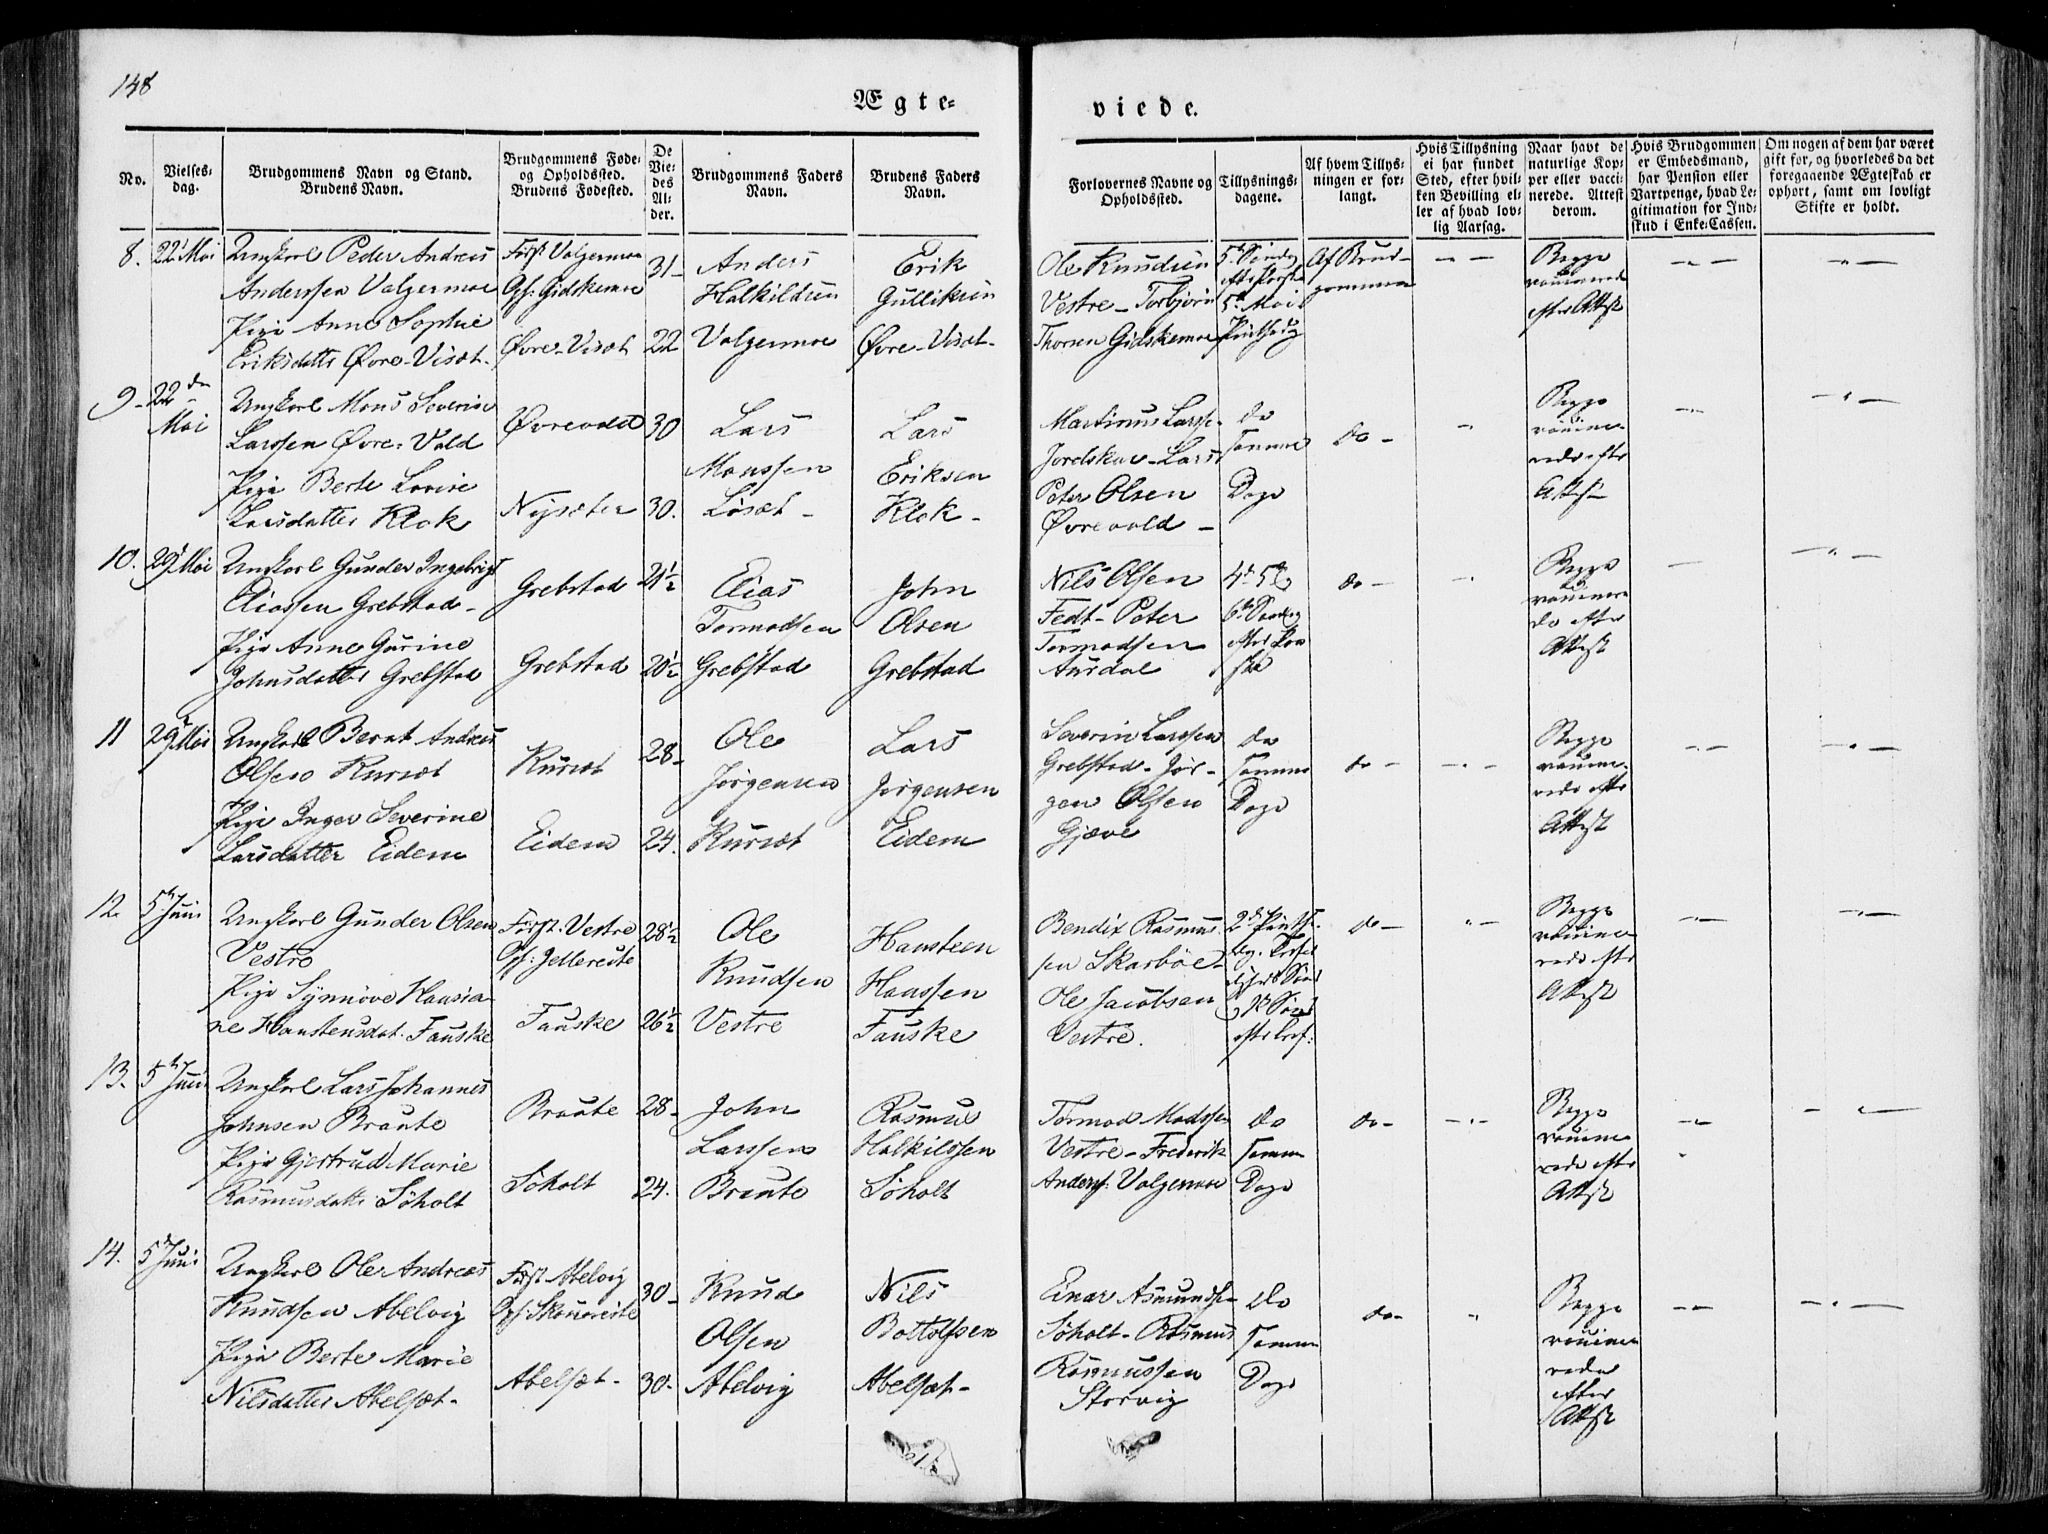 148
Ægte-
viede.
No.
Vielses-
dag.
Brudgommens Navn og Stand.
Brudens Navn.
Brudgommens Føde-
og Opholdssted.
Brudens Fødested.
De
Vie-
des
Al-
der.
Brudgommens Faders
Navn.
Brudens Faders
Navn.
Forlovernes Navne og
Opholdssted.
Tillysnings-
dagene.
Af hvem Tillys-
ningen er for-
langt.
Hvis Tillysning
ei har fundet
Sted, efter hvil-
ken Bevilling el-
ler af hvad lov-
lig Aarsag.
Naar havt de
naturlige Kop-
per eller vacci-
nerede. Attest
derom.
Hvis Brudgommen
er Embedsmand,
har Pension eller
Vartpenge, hvad Le-
gitimation for Ind-
skud i Enke-Cassen.
Om nogen af dem har været
gift før, og hvorledes da det
foregaaende Ægteskab er
ophørt, samt om lovligt
Skifte er holdt.
8. 22 Mai
Ungkarl Peder Andreas
Anderssen Valgermoe
Pige Anne Sophie
Eriksdatter Øvre-Visæt-
Født Valgermoe
Opf: Gidskemoe
Øvre-Visæt
31-
22
Anders
Halkildsen
Valgermoe
Erik
Gulliksen
Øvre-Visæt-
Ole Knudsen
Vestre-Torbjørn
Thorsen Gidskemoe
5te Søndag
efter Paaske
5te Mai
Af Brud-
gommen
Begge
vaccinerede
efter Attest
9- 22de
Mai
Ungkarl Mons Severin
Larssen Øvre-Vold
Pige Berte Lovise
Larsdatter Klok
Øvrevold
Nysæter
30
30.
Lars
Monssen
Løsæt-
Lars
Eriksen
Klok-
Martinus Larss-
Lars
Peter Olsen
Øvrevold-
do
samme
Dage
do-
Begge
vaccine-
rede efter
Attest
10. 29 Mai
Ungkarl Gunder Ingebrigt
Eliassen Grebstad-
Pige Anne Gurine
Johnsdatter Grebstad
Grebstad
Grebstad
21½
20½
Elias
Tormodsen
Grebstad
John
Olsen
Grebstad
Nils Olsen
Fedt-Peter
Tormodsen
Aursdal
4de 5te &
6te Søndag
efter Paa
ske
do-
Begge
vaccinere
de efter
Attest
11 29 Mai
Ungkarl Bernt Andreas
Olsen Kursæt
Pige Inger Severine
Larsdatter Eidem
Kursæt
Eidem
28-
24.
Ole
Jørgensen
Kursæt
Lars
Jørgensen
Eidem
Severin Larssen
Grebstad-Jør-
gen Olsen
Gjæve
do
samme
Dage
do-
Begge
vaccine-
rede efter
Attest
12. 5te Juni
Ungkarl Gunder Olsen
Vestre
Pige Synnøve Hansia-
ne Hanstensdat. Fauske
Født. Vestre
Opf: Jellereite
Fauske
28½
26½
Ole
Knudsen
Vestre
Hansteen
Hanssen
Fauske
Bendix Rasmus-
sen Skarbøe-
Ole Jacobsen
Vestre.
do-
Begge
vaccine
rede efter
Attest
13. 5te Juni
Ungkarl Lars Johannes
Johnsen Braute
Pige Gjertrud Marie
Rasmusdatter Søholt
Braute
Søholt
28-
24.
John
Larssen
Braute
Rasmus
Halkilssen
Søholt
Tormod Madssen
Vestre-Frederik
Anderss: Valgermoe
do
samme
Dage
do-
Begge
vaccine
rede efter
Attest
14. 5te Juni
Ungkarl Ole Andreas
Knudsen Abelvig
Pige Berte Marie
Nilsdatter Abelsæt-
Født Abelvig
Abelsæt-
30-
30-
Knud
Olsen
Abelvig
Nils
Bottolfsen
Abelsæt-
Einar Asmundsen
Søholt-Rasmus
Rasmussen
Storvig
do
samme
Dage
do-
Begge
vaccine
rede
efter
Attest